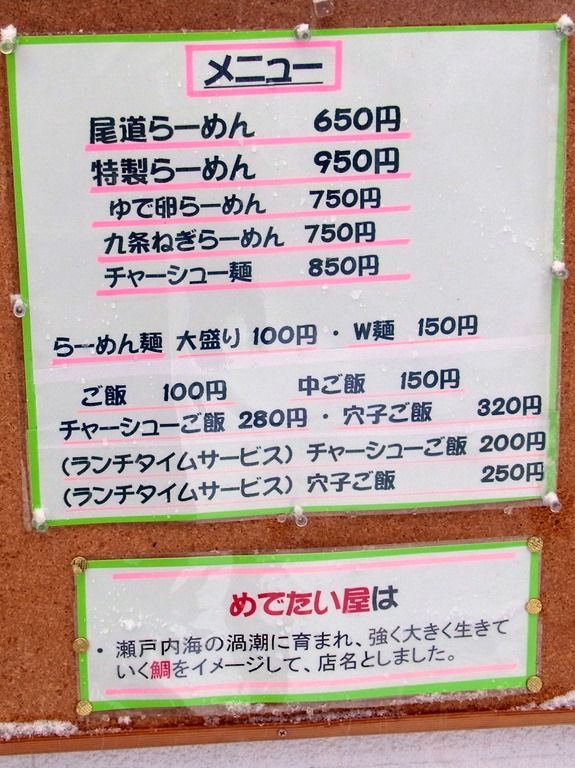 メニュー
尾道らーめん 650円
特製らーめん 950円
ゆで卵らーめん 750円
九条ねぎらーめん 750円
チャーシュー麺 850円
らーめん麺 大盛り 100円 ・ W麺 150円
ご飯 100円 中ご飯 150円
チャーシューご飯 280円 ・ 穴子ご飯 320円
(ランチタイムサービス) チャーシューご飯 200円
(ランチタイムサービス) 穴子ご飯 250円
めでたい屋は
・ 瀬戸内海の渦潮に育まれ、強く大きく生きて
いく鯛をイメージして、店名としました。